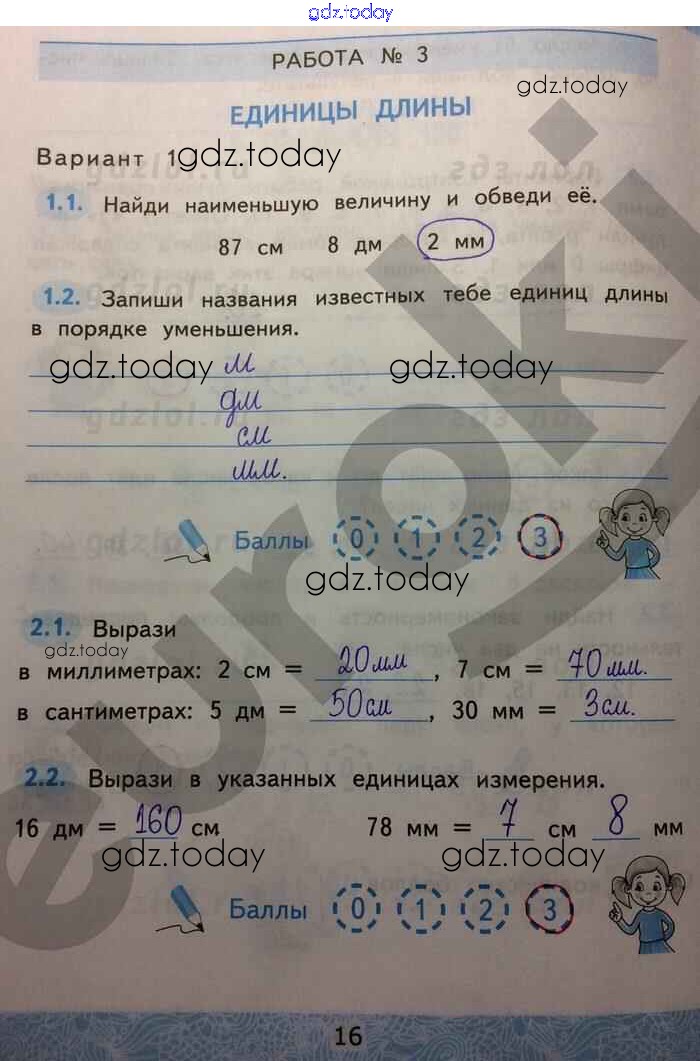 gdz.today
РАБОТА № 3
gdz.today
ЕДИНИЦЫ ДЛИНЫ
Вариант 1 gdz.today
1.1. Найди наименьшую величину и обведи её.
87 см 8 дм 2 мм
1.2. Запиши названия известных тебе единиц длины
в порядке уменьшения.
gdz.today м gdz.today
дм
см
мм.
Баллы 0 1 2 3
gdz.today
2.1. Вырази
gdz.today
в миллиметрах: 2 см = 20 мм, 7 см = 70 мм.
в сантиметрах: 5 дм = 50 см, 30 мм = 3 см.
2.2. Вырази в указанных единицах измерения.
16 дм = 160 см 78 мм = 7 см 8 мм
gdz.today gdz.today
Баллы 0 1 2 3
16
euroki